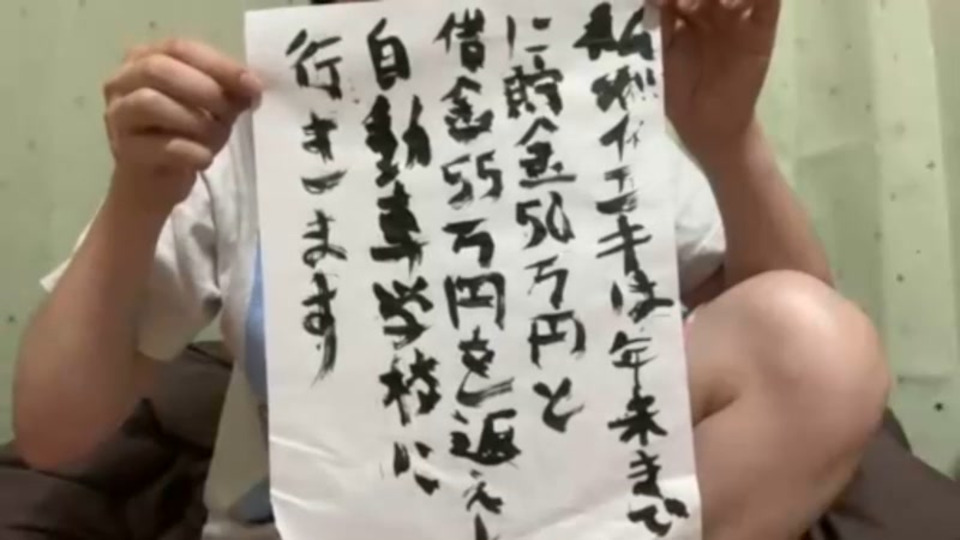 私 は年末まで
に貯金50万円と
借金55万円を返えし
自動車学校に
行きます